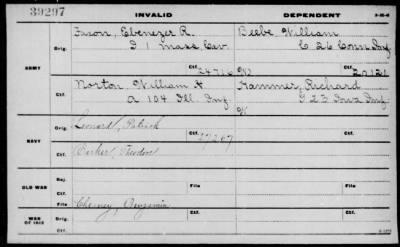 39297
INVALID DEPENDENT
Orig. Faxon, Ebenezer R. Beebe, William
I 1 Mass Cav. C 26 Conn Inf
ARMY
Ctf. 24716 Ctf.
Norton, William H Hammer, Richard
Ctf. A 104 Ill. Inf. G 23 Iowa Inf.
W
Orig. Leonard, Patrick
NAVY
Ctf. Barker, Theodore
OLD WAR
Ctf. File Ctf. File
WAR OF 1812 Cheney, Benjamin